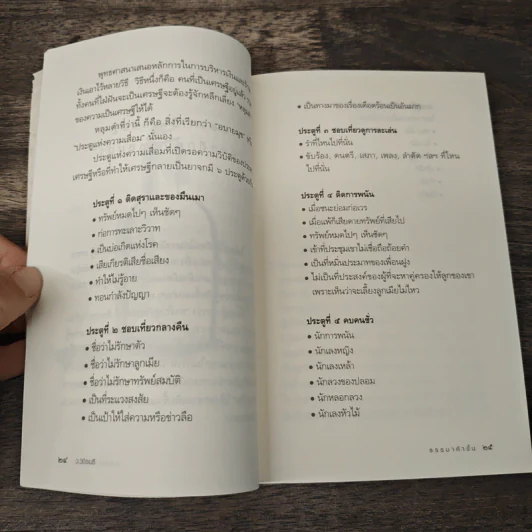 พุทธศาสนาเสนอหลักการในการบริหารเงินและ
เงินเอาไว้หลายวิธี วิธีหนึ่งก็คือ คนที่เป็นเศรษฐีอยู่แล้ว
ทั้งคนที่ใฝ่ฝันจะเป็นเศรษฐีจะต้องรู้จักหลีกเลี่ยง
ของความเป็นเศรษฐีให้ได้
หลุมดำที่ว่านี้ ก็คือ สิ่งที่เรียกว่า "อบายมุข"
"ประตูแห่งความเสื่อม" นั่นเอง
ประตูแห่งความเสื่อมที่เปิดรอความวิบัติของ
เศรษฐีหรือที่ทำให้เศรษฐีกลายเป็นยาจกมี ๖ ประตู
ประตูที่ ๑ ติดสุราและของมึนเมา
• ทรัพย์หมดไปๆ เห็นชัดๆ
• ก่อการทะเลาะวิวาท
• เป็นบ่อเกิดแห่งโรค
• เสียเกียรติเสียชื่อเสียง
• ทำให้ไม่รู้อาย
• ทอนกำลังปัญญา
ประตูที่ ๒ ชอบเที่ยวกลางคืน
• ชื่อว่าไม่รักษาตัว
• ชื่อว่าไม่รักษาลูกเมีย
• ชื่อว่าไม่รักษาทรัพย์สมบัติ
• เป็นที่ระแวงสงสัย
• เป็นเป้าให้ใส่ความหรือข่าวลือ
๒๔ ว.วชิรเมธี
• เป็นทางมาของเรื่องเดือดร้อนเป็นอันมาก
ประตูที่ ๓ ชอบเที่ยวดูการละเล่น
• รำที่ไหนไปที่นั่น
• ขับร้อง, ดนตรี, เสภา, เพลง, ลำตัด ฯลฯ ที่ไหน
ไปที่นั่น
ประตูที่ ๔ ติดการพนัน
• เมื่อชนะย่อมก่อเวร
• เมื่อแพ้ก็เสียดายทรัพย์ที่เสียไป
• ทรัพย์หมดไปๆ เห็นชัดๆ
• เข้าที่ประชุมเขาไม่เชื่อถือถ้อยคำ
• เป็นที่หมิ่นประมาทของเพื่อนฝูง
• ไม่เป็นที่ประสงค์ของผู้ที่จะหาคู่ครองให้ลูกของเขา
เพราะเห็นว่าจะเลี้ยงลูกเมียไม่ไหว
ประตูที่ ๕ คบคนชั่ว
• นักการพนัน
• นักเลงหญิง
• นักเลงเหล้า
• นักลวงของปลอม
• นักหลอกลวง
• นักเลงหัวไม้
ธรรมาค้าขึ้น ๒๕